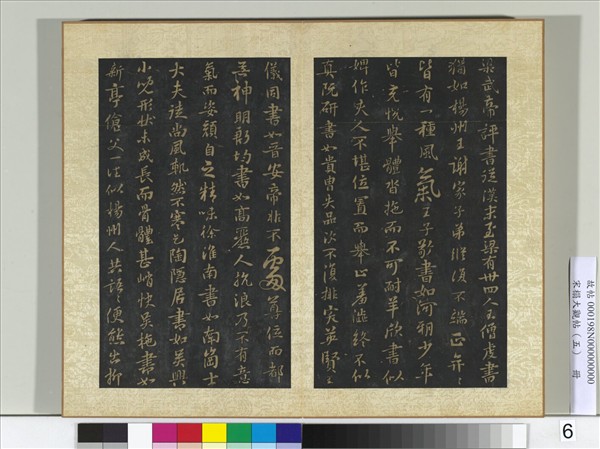 梁武帝評書從漢末至梁有卅四人王僧虔書
猶如楊州王謝家子弟縱復不端正奕〻
皆有一種風氣王子敬書如河朔少年
皆充悅舉體沓拖而不可耐羊欣書似
婢作夫人不堪位置而舉止羞澁終不似
真阮研書如貴冑失品次不復排突英賢王
儀同書如晉安帝非不處尊位而都
無神明庾肩吾書
氣而姿頟自之精味徐淮南書如南崗士
大夫徒尚風軌然不寒乞陶隱居書如吳興
小兒形狀未成長而骨體甚峭快吳施書如
新亭傖父一往似楊州人共語〻便態出柳
故帖000198N000000000
宋搨大觀帖(五) 冊
6